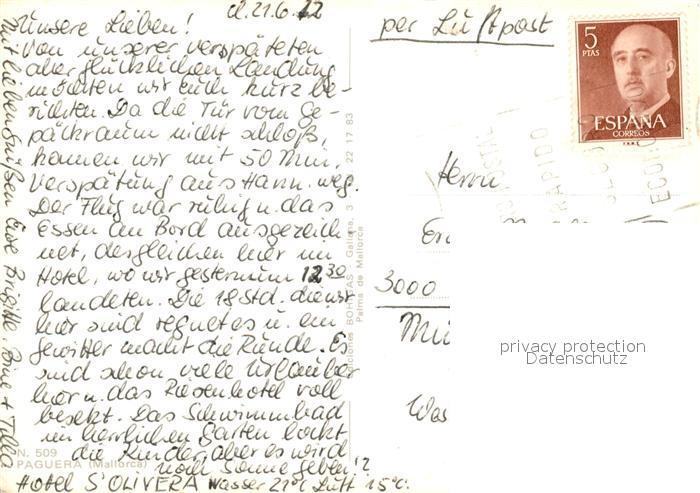 d. 21.6.72
Unsere Lieben!
Von unserer verspäteten
aber glücklichen Landung
möchten wir euch kurz be-
richten. Da die Tür vom Ge-
päckraum nicht schloß,
kamen wir mit 50 Min.
Verspätung aus Hann. weg.
Der Flug war ruhig u. das
Essen an Bord ausgezeich-
net, desgleichen hier im
Hotel, wo wir gestern um 12 30
landeten. Die 18 Std. die wir
hier sind regnet es u. ein
Gewitter macht die Runde. Es
sind schon viele Urlauber
hier u. das Riesenhotel voll
besetzt. Das Schwimmbad
im herrlichen Garten lockt
die Kinder, aber es wird
noch Sonne geben!?
Hotel S'OLIVERA Wasser 21°C Luft 15°C.
mit lieben Grüßen Eure Brigitte,
N. 509
PAGUERA (Mallorca)
BOHIGAS
22 17 83
Palma de Mallorca
per Luftpost
5
PTAS
ESPAÑA
CORREOS
F.N.M.T.
RAPIDO
Herrn
3000
Mü
Was
privacy protection
Datenschutz